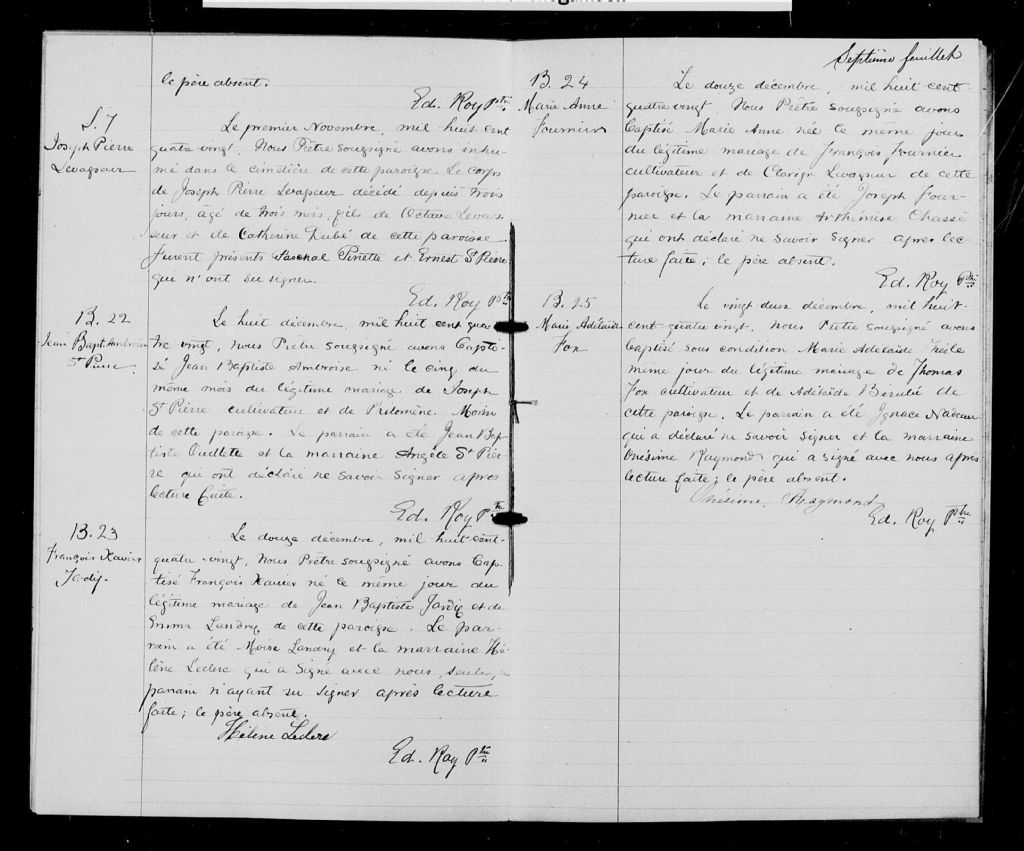 le père absent.
Ed. Roy Ptre
S. 7
Joseph Pierre
Levasseur
Le premier Novembre, mil huit cent
quatre vingt, Nous Prêtre soussigné avons inhu-
mé dans le cimetière de cette paroisse le corps
de Joseph Pierre Levasseur décédé depuis trois
jours, âgé de trois mois, fils de Octave Levas-
seur et de Catherine Dubé de cette paroisse.
Furent présents Paschal Pinette et Ernest St Pierre
qui n'ont su signer.
Ed. Roy Ptre
B. 22
Jean Bapt. Ambroise
St Pierre
Le huit décembre, mil huit cent qua-
tre vingt, nous Prêtre soussigné avons bapti-
sé Jean Baptiste Ambroise né le cinq du
même mois du légitime mariage de Joseph
St Pierre cultivateur et de Philomène Morin
de cette paroisse. Le parrain a été Jean Bap-
tiste Ouellette et la marraine Angèle St Pier-
re qui ont déclaré ne savoir signer après
lecture faite.
Ed. Roy Ptre
B. 23
François Xavier
Jardif.
Le douze décembre, mil huit cent-
quatre vingt, Nous Prêtre soussigné avons bap-
tisé François Xavier né le même jour du
légitime mariage de Jean Baptiste Jardif et de
Emma Landry de cette paroisse. Le par-
rain a été Moise Landry et la marraine Hé-
lène Leclerc qui a signé avec nous, seule, le
parrain n'ayant su signer après lecture
faite; le père absent.
Hélène Leclerc
Ed. Roy Ptre
Septième feuillet
B. 24
Marie Anne
Fournier
Le douze décembre, mil huit cent
quatre vingt, Nous Prêtre soussigné avons
baptisé Marie Anne née le même jour
du légitime mariage de François Fournier
cultivateur et de Clarisse Levasseur de cette
paroisse. Le parrain a été Joseph Four-
nier et la marraine Arthémise Chassé
qui ont déclaré ne savoir signer après lec-
ture faite; le père absent.
Ed. Roy Ptre
B. 25
Marie Adélaide
Fox
Le vingt deux décembre, mil huit-
cent-quatre vingt, Nous Prêtre soussigné avons
baptisé sous condition Marie Adélaide née le
même jour du légitime mariage de Thomas
Fox cultivateur et de Adélaide Bérubé de
cette paroisse. Le parrain a été Ignace Nadeau
qui a déclaré ne savoir signer et la marraine
Onésime Raymond qui a signé avec nous après
lecture faite; le père absent.
Onésime Raymond
Ed. Roy Ptre